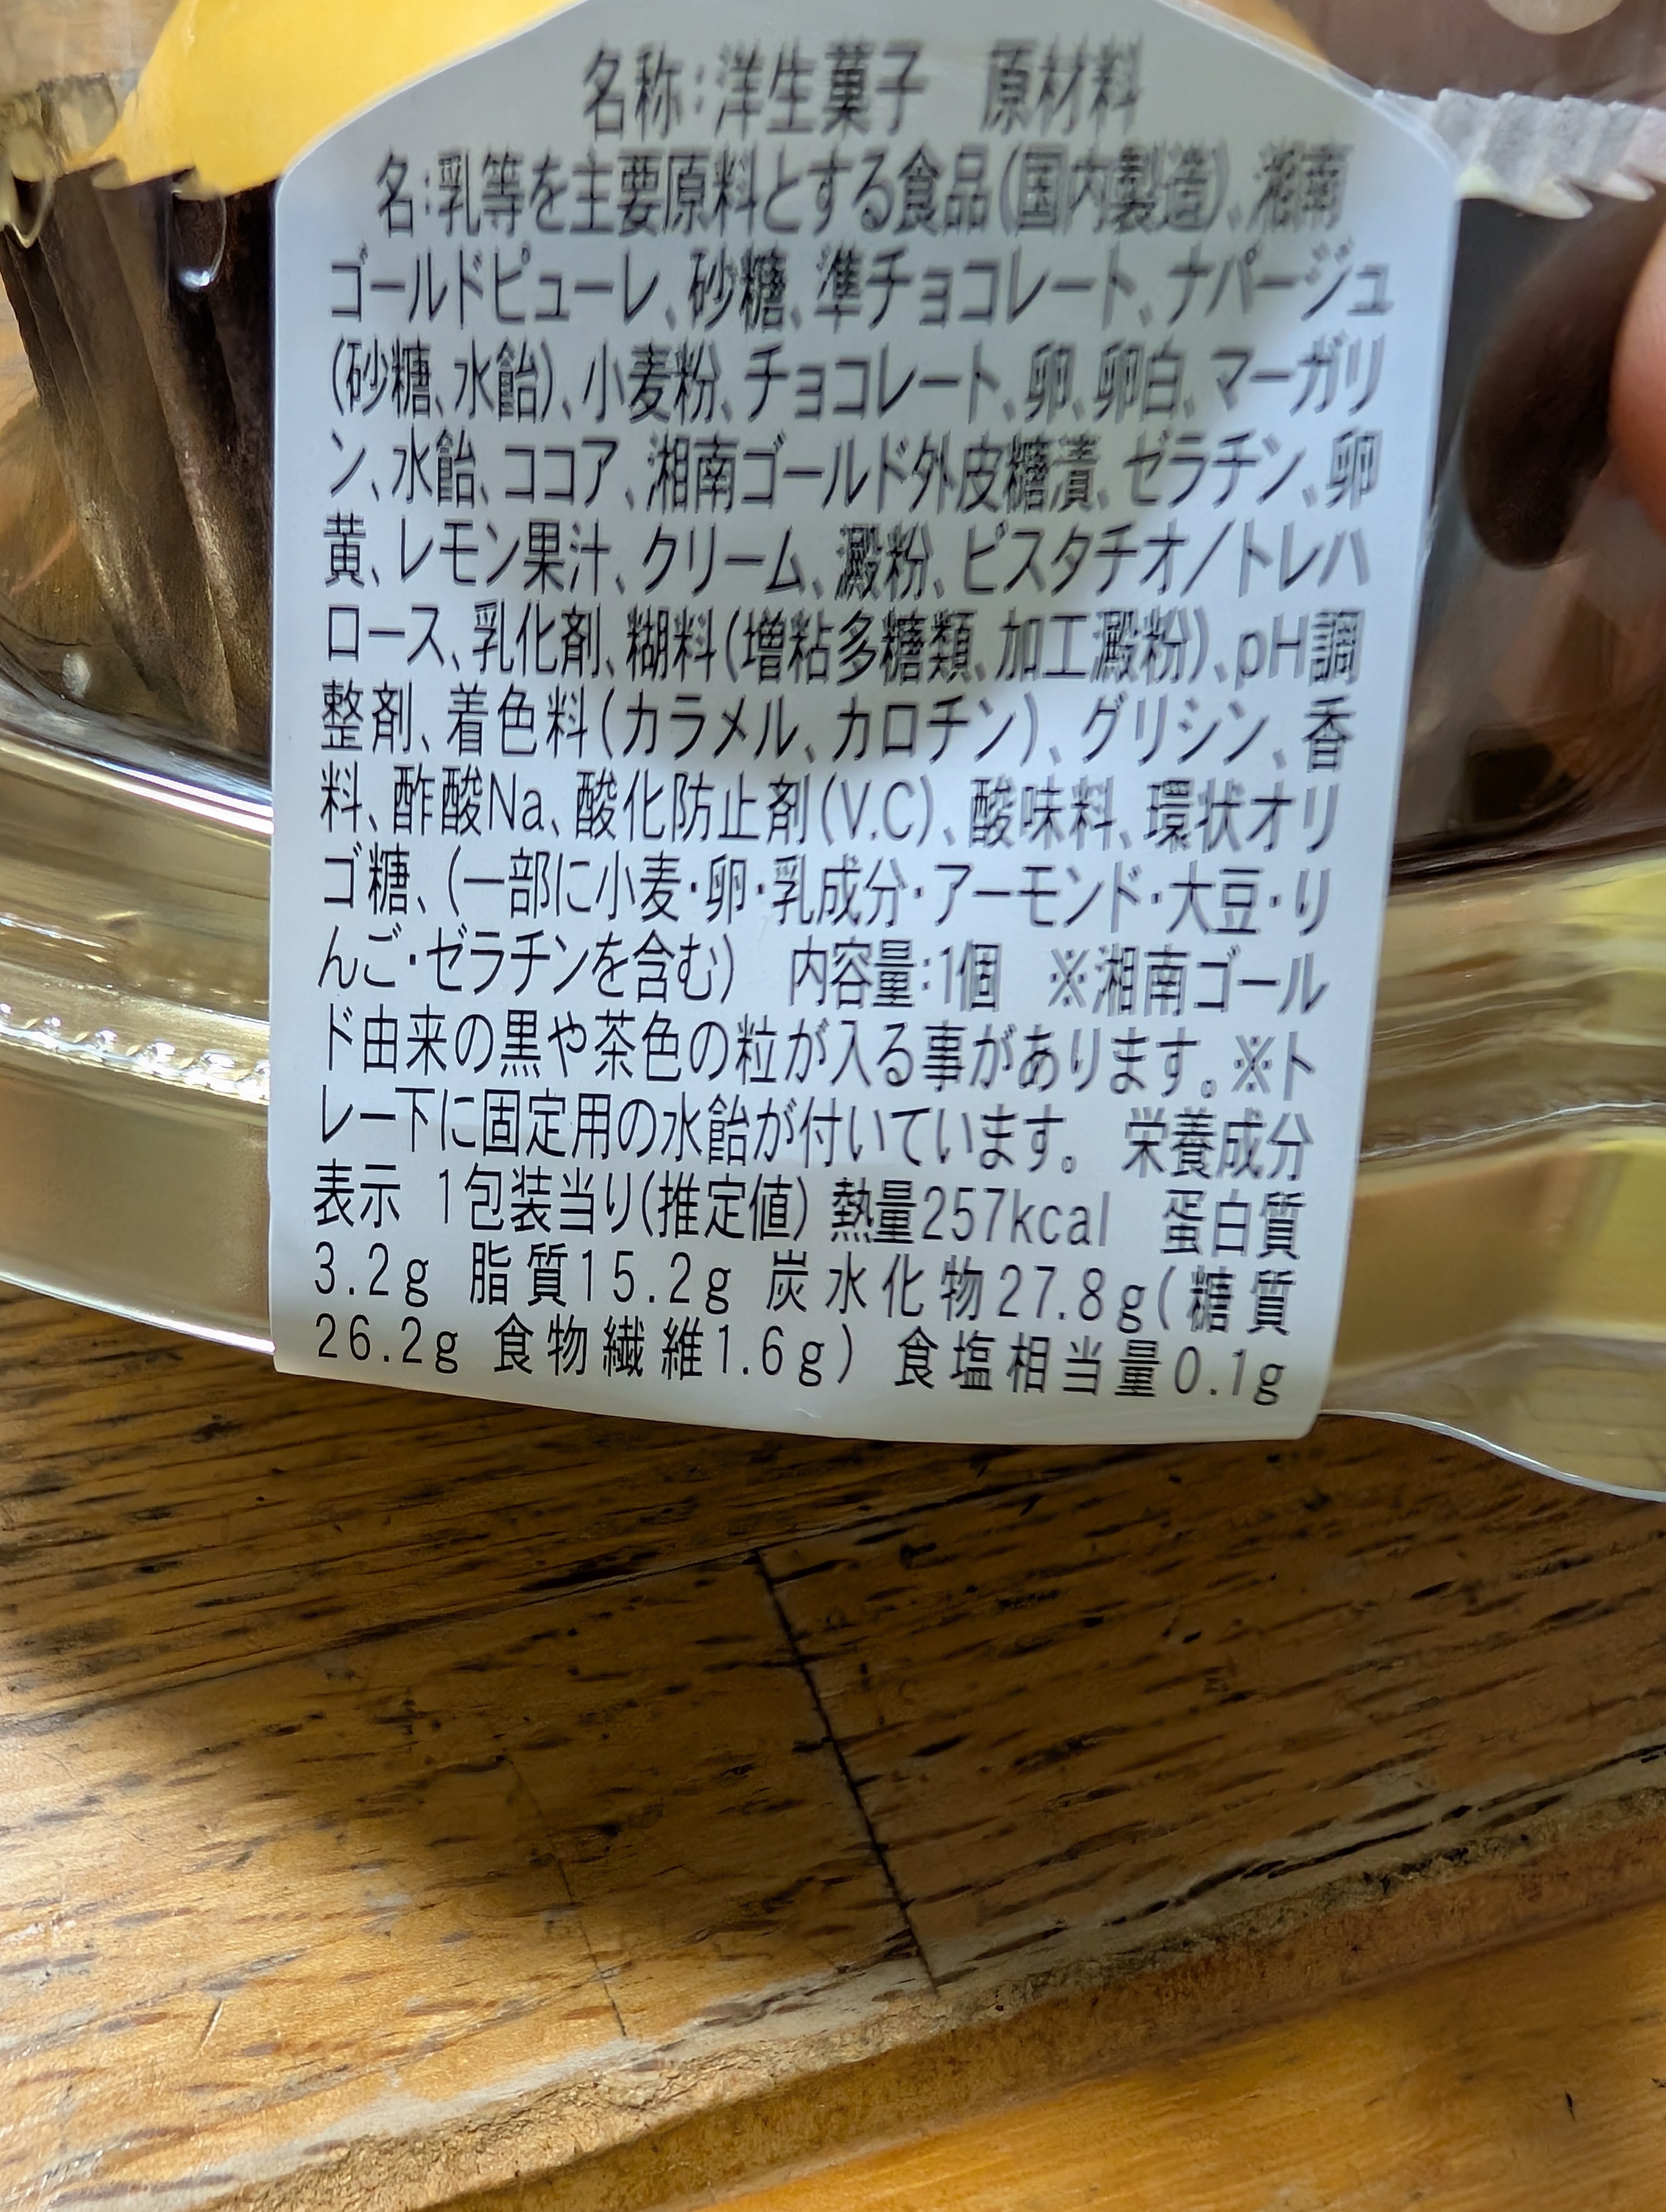 名称:洋生菓子 原材料
名:乳等を主要原料とする食品(国内製造)、湘南
ゴールドピューレ、砂糖、準チョコレート、ナパージュ
(砂糖、水飴)、小麦粉、チョコレート、卵、卵白、マーガリ
ン、水飴、ココア、湘南ゴールド外皮糖漬、ゼラチン、卵
黄、レモン果汁、クリーム、澱粉、ピスタチオ/トレハ
ロース、乳化剤、糊料(増粘多糖類、加工澱粉)、pH調
整剤、着色料(カラメル、カロチン)、グリシン、香
料、酢酸Na、酸化防止剤(V.C)、酸味料、環状オリ
ゴ糖、(一部に小麦・卵・乳成分・アーモンド・大豆・り
んご・ゼラチンを含む) 内容量:1個 ※湘南ゴール
ド由来の黒や茶色の粒が入る事があります。※ト
レー下に固定用の水飴が付いています。 栄養成分
表示 1包装当り(推定値) 熱量257kcal 蛋白質
3.2g 脂質15.2g 炭水化物27.8g(糖質
26.2g 食物繊維1.6g) 食塩相当量0.1g